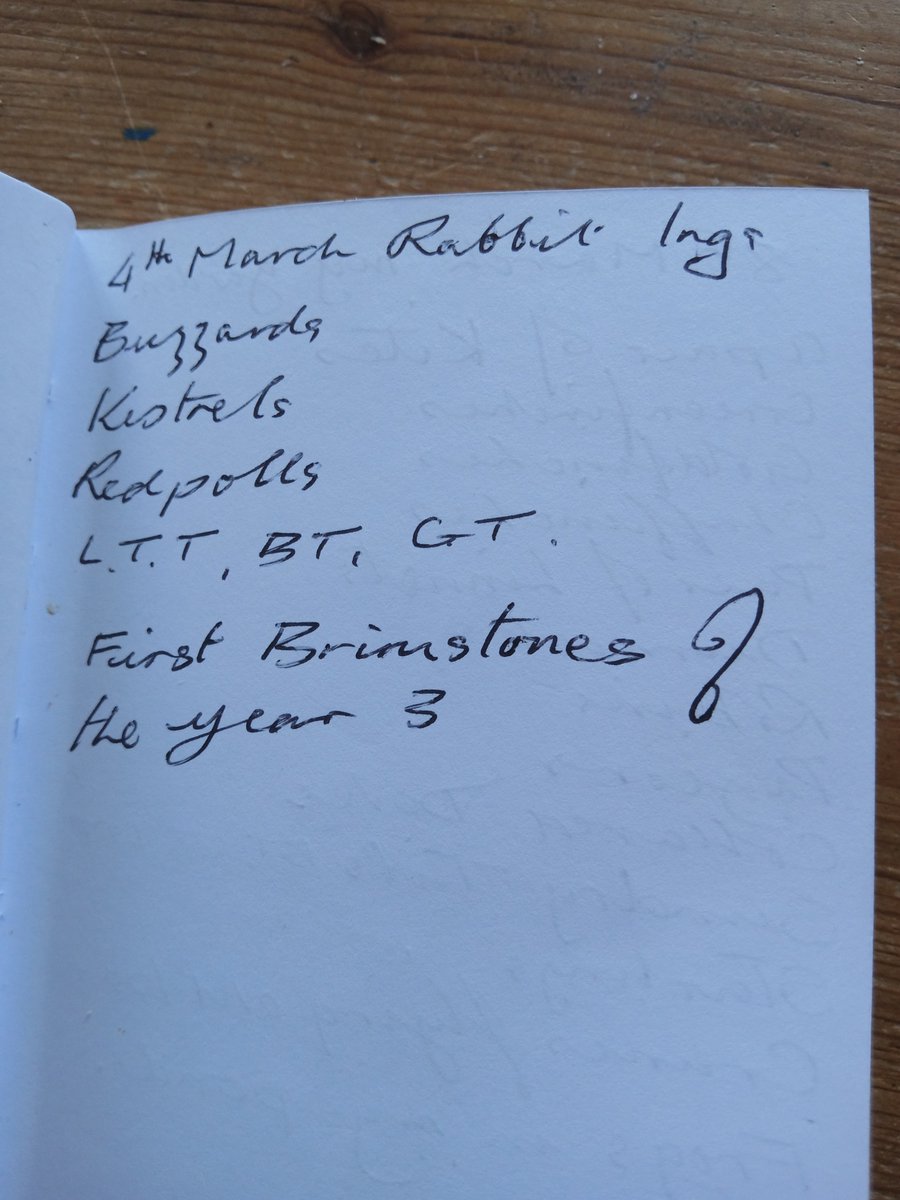 4th March Rabbit Ings
Buzzards
Kistrels
Redpolls
L.T.T, BT, GT.
First Brimstones of
the year 3